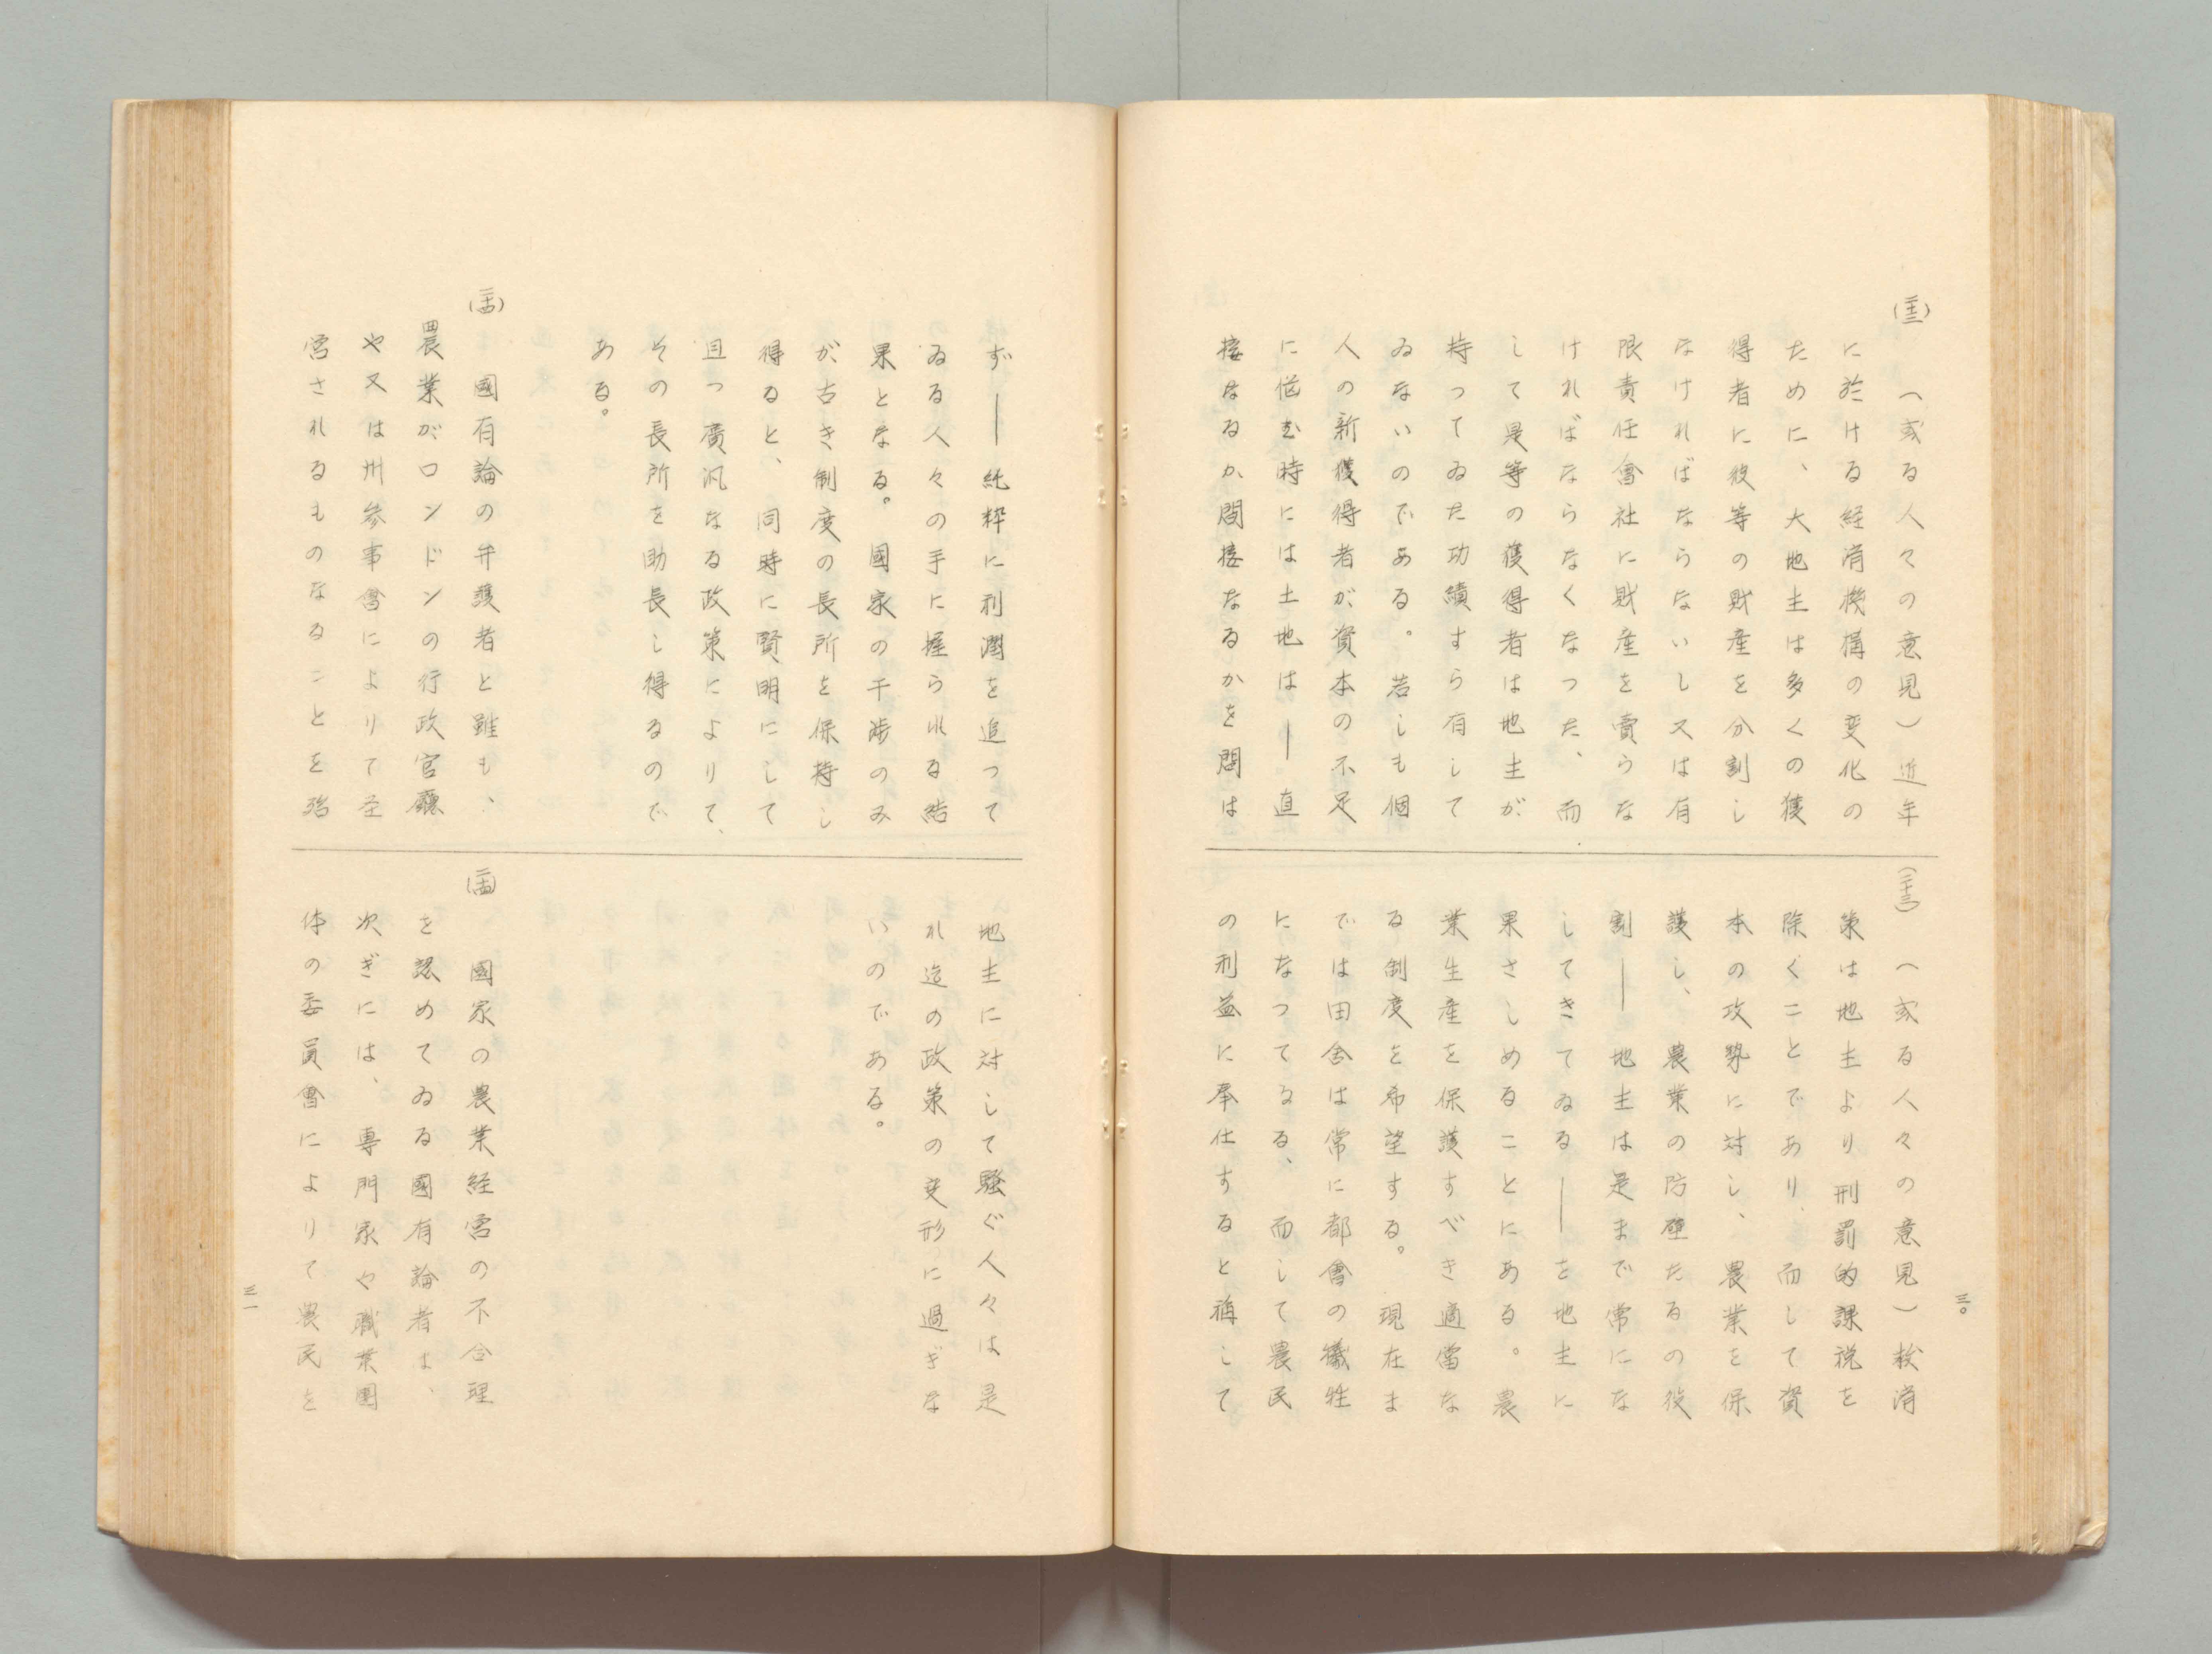 (二十三)
(或る人々の意見)近年
に於ける経済機構の変化の
ために、大地主は多くの獲
得者に彼等の財産を分割し
なければならないし又は有
限責任會社に財産を賣らな
ければならなくなつた、而
して是等の獲得者は地主が
持つてゐた功績すら有して
ゐないのである。若しも個
人の新獲得者が資本の不足
に悩む時には土地は―直
接なるか間接なるかを問は
(二十三)
(或る人々の意見)救済
策は地主より刑罰的課税を
除くことであり、而して資
本の攻勢に対し、農業を保
護し、農業の防壁たるの役
割―地主は是まで常にな
してきてゐる―を地主に
果さしめることにある。農
業生産を保護すべき適當な
る制度を希望する。現在ま
では田舎は常に都會の犠牲
になつてゐる、而して農民
の利益に奉仕すると稱して
三〇
ず―純粹に利潤を追つて
ゐる人々の手に握られる結
果となる。國家の干渉のみ
が古き制度の長所を保持し
得ると、同時に賢明にして
且つ廣汎なる政策によりて、
その長所を助長し得るので
ある。
(二十四)
國有論の弁護者と雖も、
農業がロンドンの行政官廳
や又は州参事會によりて圣
営されるものなることを強
地主に対して騒ぐ人々は是
れ迄の政策の変形に過ぎな
いのである。
(二十四)
國家の農業経営の不合理
を認めてゐる國有論者は、
次ぎには、專門家や職業團
体の委員會によりて農民を
三一